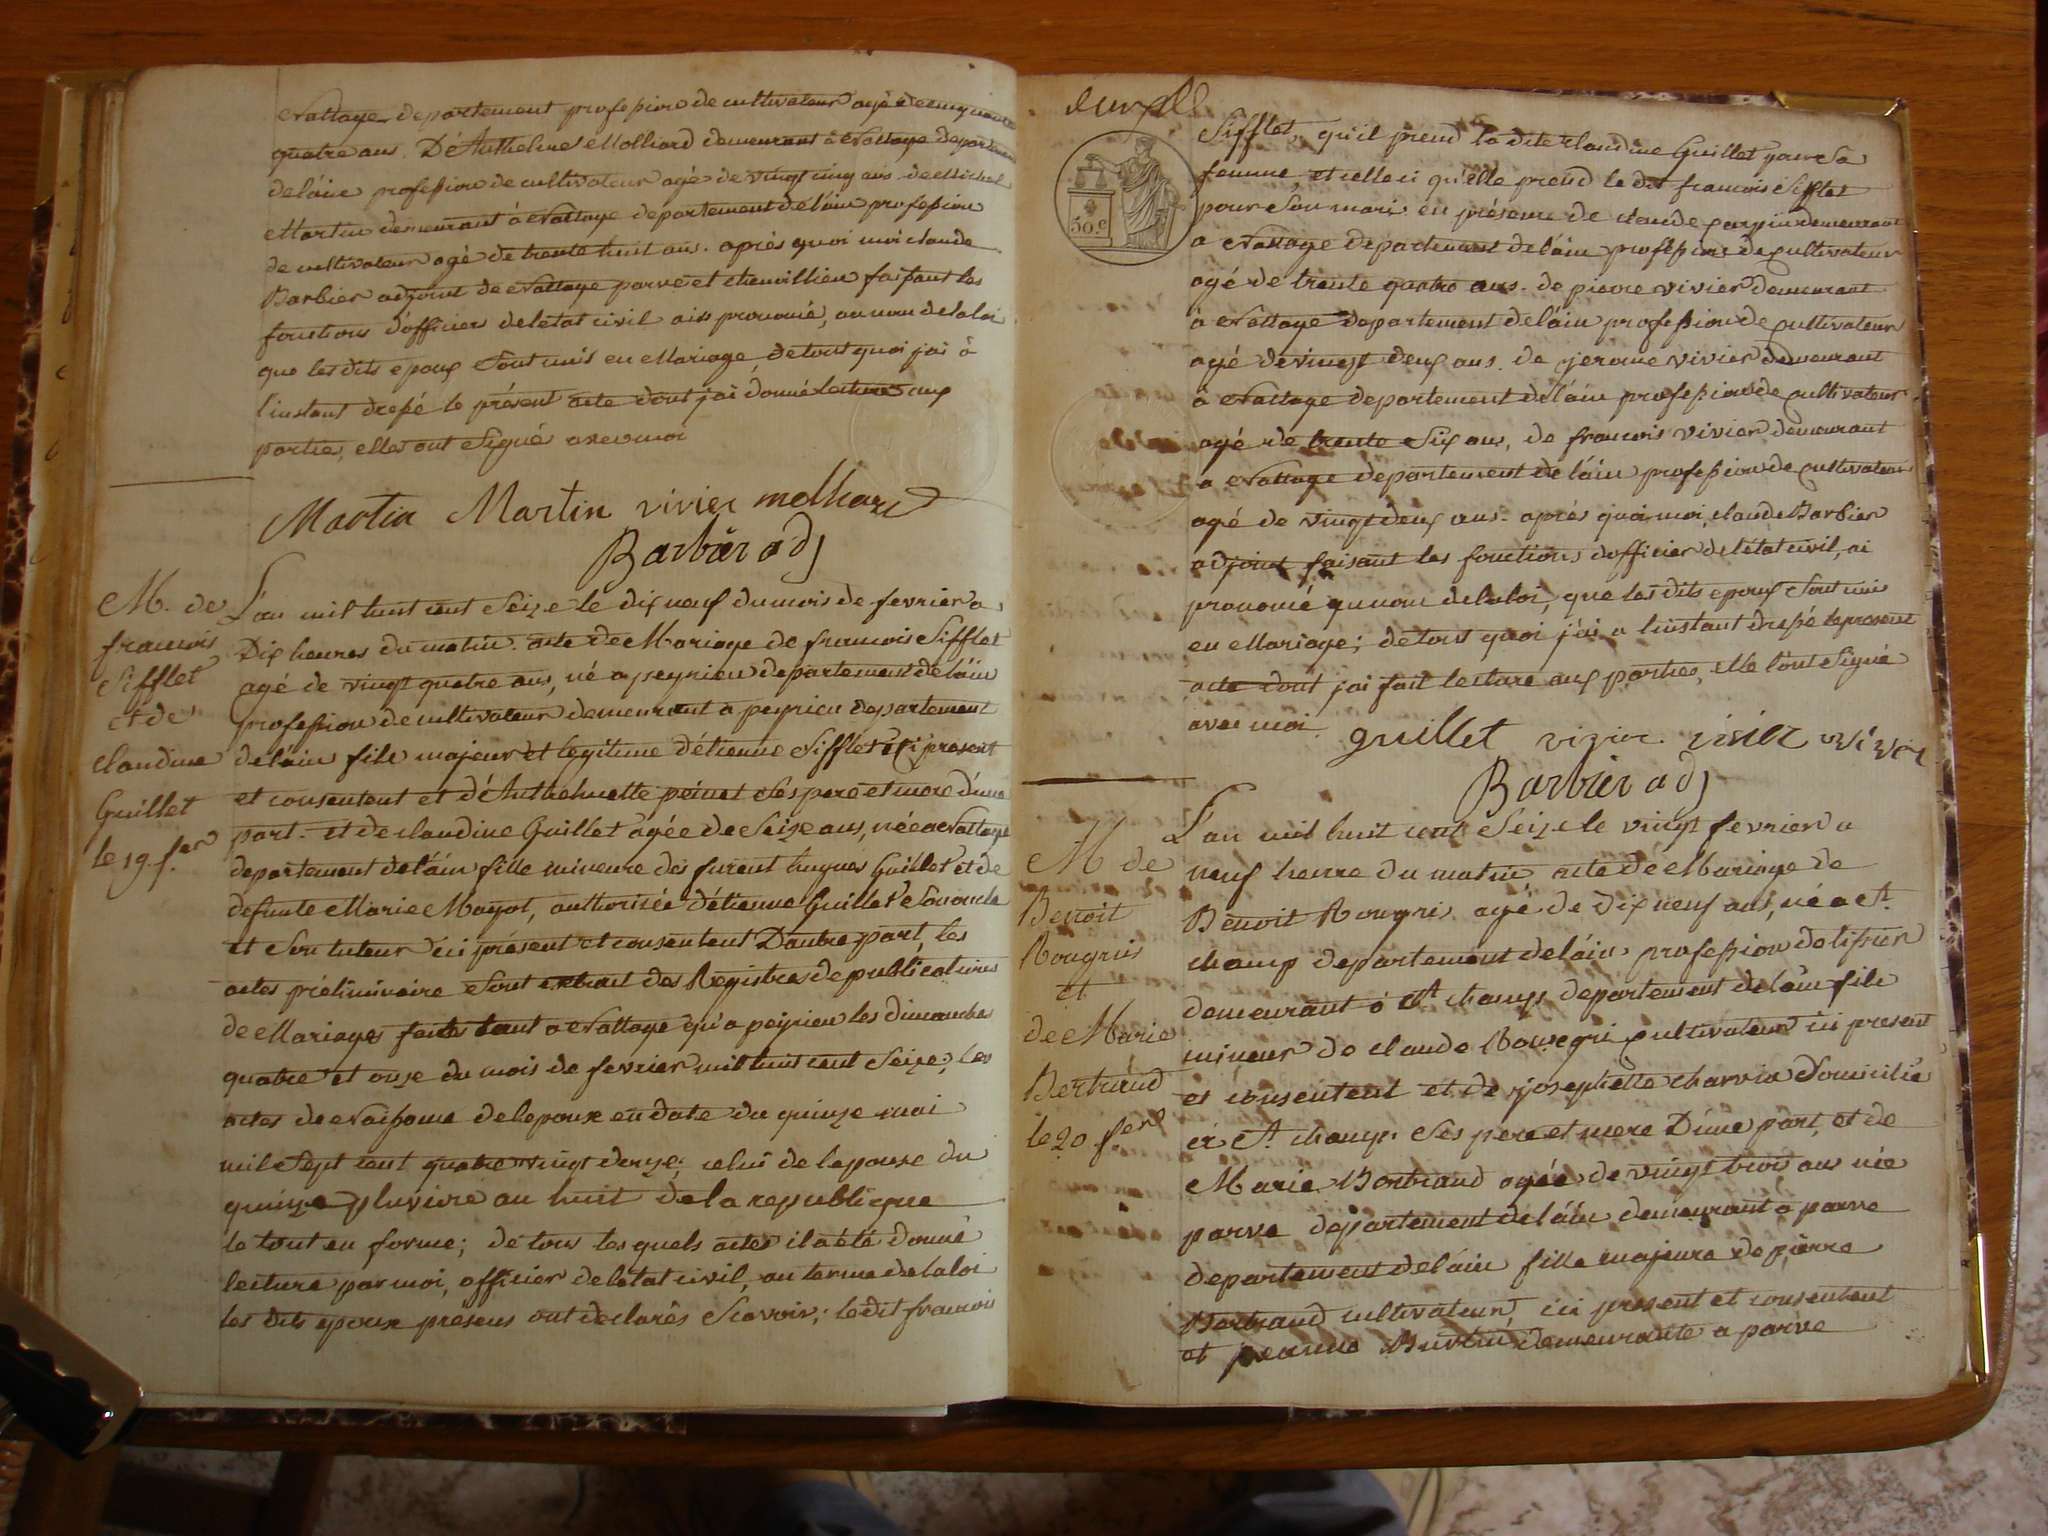 Nattage departement profession de cultivateur agé de cinquante
quatre ans. D'Anthelme Molliard demeurant à Nattage departement
delâin profession de cultivateur agé de vingt cinq ans. de Michel
Martin demeurant à Nattage departement de lâin profession
de cultivateur agé de trente huit ans. apres quoi moi claude
Barbier adjoint de Nattage parve et chemillieu faisant les
fonctions d'officier deletat civil ais prononcé, au nom delaloi
que les dits epoux Sont unis en Mariage, detout quoi jai à
l'instant dressé le présent acte dont jai donné lecture aux
partie, elles ont Signé avec moi
Martin Martin vivier molliard
Barbier adj
M. de
francois
Sifflet
et de
claudine
Guillet
le 19. f.er
L'an mil huit cent Seize le dix neuf du mois de fevrier a
Dix heures du matin. acte de Mariage de francois Sifflet
agé de vingt quatre ans, né a peyrieu departement de lâin
profession de cultivateur demeurant a peyrieu departement
delâin fils majeur et legitime d'étienne Sifflet ici present
et consentent et d'Anthelmette peinet Ses pere et mere d'une
part. et de claudine Guillet agée de Seize ans, née a Nattage
departement delâin fille mineure des furent hugues Guillet et de
defunte Marie Mayot, authorisée d'étienne Guillet Son oncle
et Son tuteur ici présent et consentent D'autre part, les
actes préliminaire Sont extrait des Registres de publications
de Mariages faites tant a Nattage qu'a peyrieu les dimanches
quatre et onze du mois de fevrier mil huit cent Seize; les
actes de Naissance delepoux en date du quinze mai
mil Sept cent quatre vingt douze; celui de lepouse du
quinze pluviose an huit de la republique
le tout en forme; de tous les quels actes il a été donné
lecture par moi, officier deletat civil, au terme delaloi
les dits epoux présens ont declarés Scavoir; ledit francois
Sifflet, qu'il prend la dite claudine Guillet pour Sa
femme, et celle ci qu'elle prend le dit francois Sifflet
50.c
pour Son mari en présence de claude demeurant
a Nattage departement de lâin profession de cultivateur
agé de trente quatre ans. de pierre vivier demeurant
à Nattage departement delâin profession de cultivateur
agé de vingt deux ans. de jerome vivier demeurant
a Nattage departement de lâin profession de cultivateur
agé de trente Six ans, de francois vivier demeurant
a Nattage departement de lâin profession de cultivateur
agé de vingt deux ans. apres quoi moi, claude Barbier
adjoint faisant les fonctions d'officier de letat civil, ai
prononcé au nom delaloi, que les dits epoux Sont unis
en Mariage; de tout quoi j'ai a linstant dressé le present
acte dont jai fait lecture aux parties, elle l'ont Signé
avec moi.
guillet vivier vivier vivier
Barbier adj
M de
Benoit
Rougris
et
de Marie
Bertrand
le 20 f.er
L'an mil huit cent Seize le vingt fevrier a
neuf heure du matin acte de Mariage de
Benoit Rougris agé de dix neuf ans, né a S.t
champ departement delâin profession de tissier
demeurant à S.t champ departement de lâin fils
mineur de claude Rougris cultivateur ici present
et consentent et de josephette charvin Domicilié
à S.t champ. Ses pere et mere D'une part, et de
Marie Bertrand agée de vingt trois ans née
parve departement delâin demeurant à parve
departement delâin fille majeure de pierre
Bertrand cultivateur, ici present et consentent
et jeanne demeurante a parve